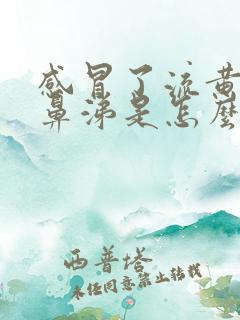 感冒了流黄
鼻涕是怎么
西普塔
未经同意禁止转载